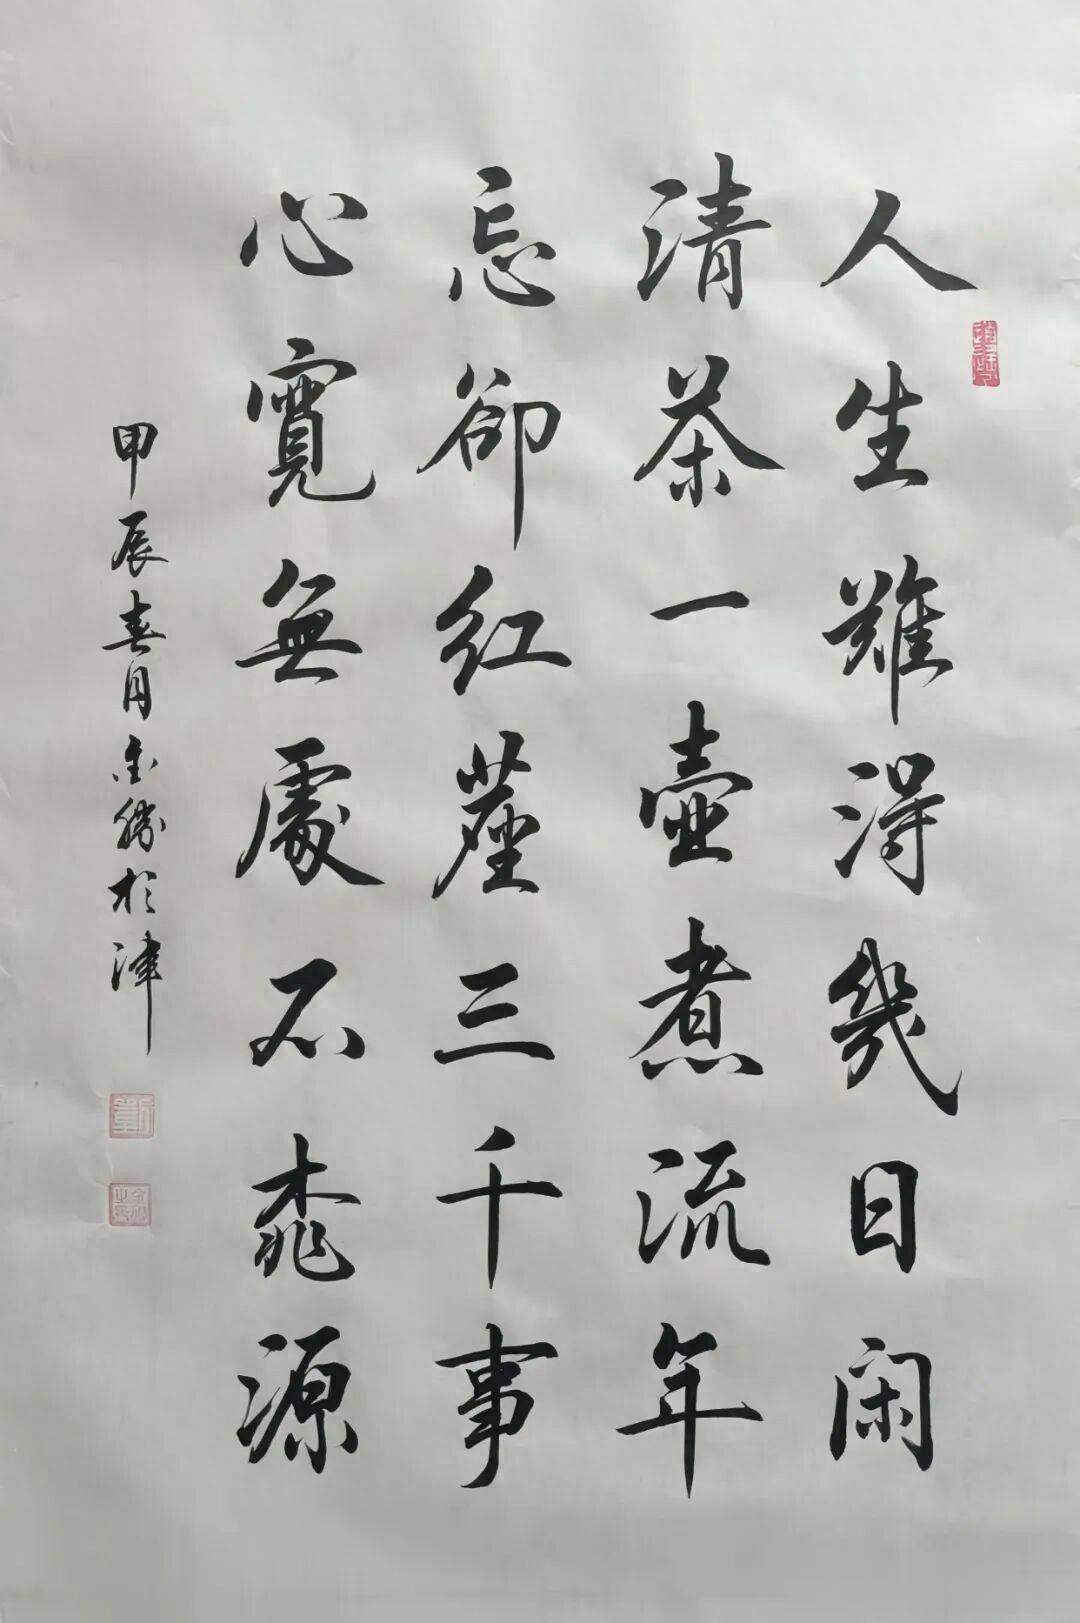 人生難得幾日閑
清茶一壺煮流年
忘卻紅塵三千事
心寬無處不桃源
甲辰春月金勝於津